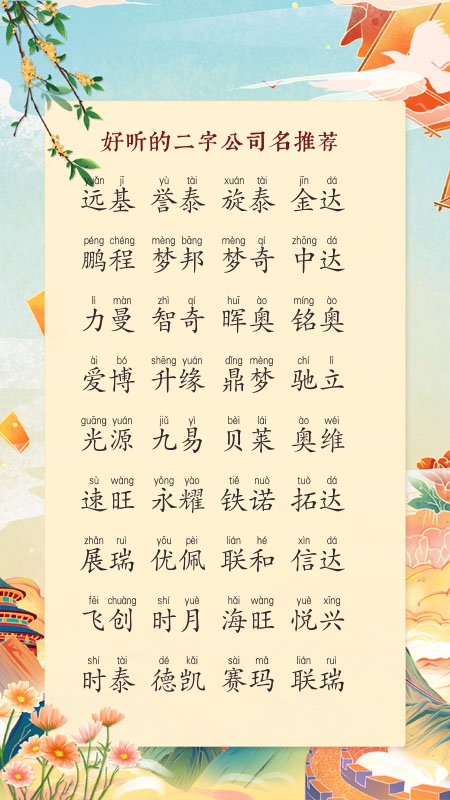 好听的二字公司名推荐
yuǎn jī yù tài xuán tài jīn dá
远基 誉泰 旋泰 金达
péng chéng mèng bāng mèng qí zhōng dá
鹏程 梦邦 梦奇 中达
lì màn zhì qí huī ào míng ào
力曼 智奇 晖奥 铭奥
ài bó shēng yuán dǐng mèng chí lì
爱博 升缘 鼎梦 驰立
guāng yuán jiǔ yì bèi lái ào wéi
光源 九易 贝莱 奥维
sù wàng yǒng yào tiě nuò tuò dá
速旺 永耀 铁诺 拓达
zhǎn ruì yōu pèi lián hé xìn dá
展瑞 优佩 联和 信达
fēi chuàng shí yuè hǎi wàng yuè xīng
飞创 时月 海旺 悦兴
shí tài dé kǎi sài mǎ lián ruì
时泰 德凯 赛玛 联瑞